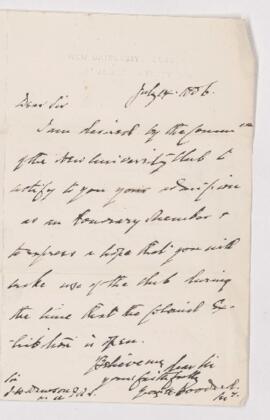 NEW UNIVERSITY CLUB
July 14. 1886.
Dear Sir
I am desired by the Committee
of the New University Club to
notify to you your admission
as an Honorary Member &
to express a hope that you will
make use of the Club during
the time that the Colonial Ex-
hibition is open.
Believe me Dear Sir
yours faithfully
Sir
J W Dawson